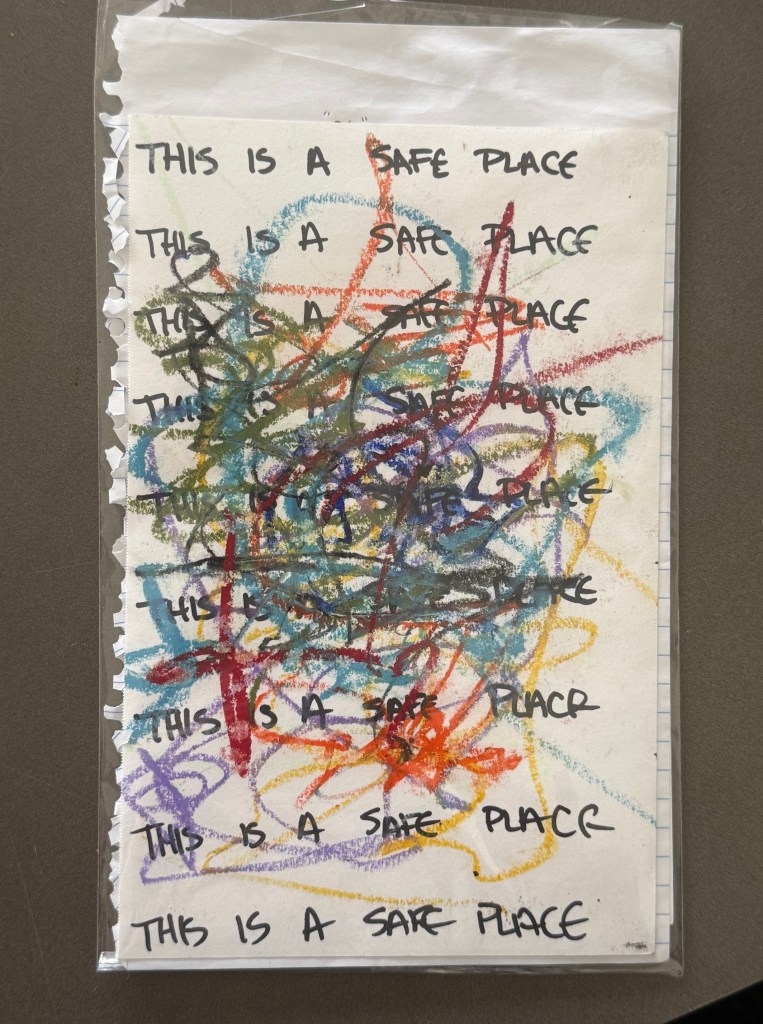 THIS IS A SAFE PLACE
THIS IS A SAFE PLACE
THIS IS A SAFE PLACE
THIS IS A SAFE PLACE
THIS IS A SAFE PLACE
THIS IS A SAFE PLACE
THIS IS A SAFE PLACE
THIS IS A SAFE PLACE
THIS IS A SAFE PLACE